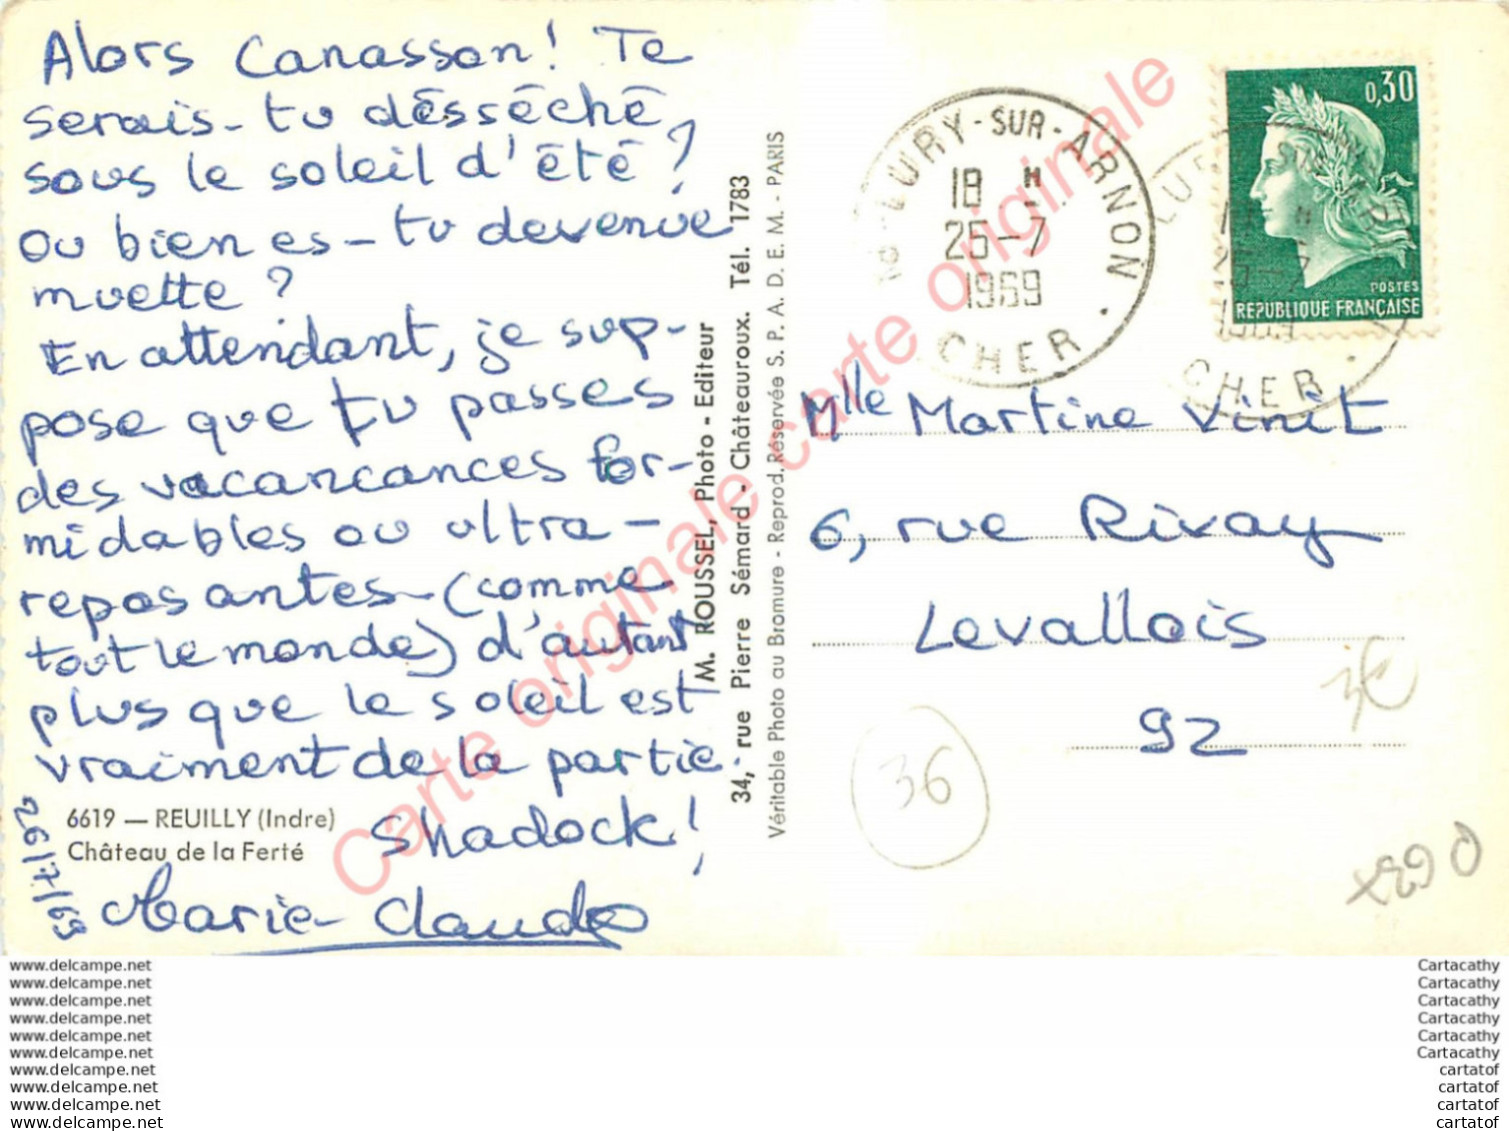 Alors Canasson! Te
serais-tu désséché,
sous le soleil d'été?
Ou bien es-tu devenue
muette?
En attendant, je sup-
pose que tu passes
des vacancances for-
midables ou ultra-
reposantes (comme
tout le monde) d'autant
plus que le soleil est
vraiment de la partie.
Shadock!
Marie-Claude
6619 — REUILLY (Indre)
Château de la Ferté
M. ROUSSEL, Photo - Editeur
34, rue Pierre Sémard - Châteauroux. Tél. 1783
Véritable Photo au Bromure - Reprod. Réservée S. P. A. D. E. M. - PARIS
LURY-SUR-ARNON
18 H
1969
CHER
0,30
POSTES
REPUBLIQUE FRANÇAISE
CHER
Mlle Martine Vinit
6, rue Rivay
Levallois
92
36
3€
Carte originale carte originale
Carte originale
www.delcampe.net
www.delcampe.net
www.delcampe.net
www.delcampe.net
www.delcampe.net
www.delcampe.net
www.delcampe.net
www.delcampe.net
www.delcampe.net
www.delcampe.net
Cartacathy
Cartacathy
Cartacathy
Cartacathy
Cartacathy
Cartacathy
cartatof
cartatof
cartatof
cartatof